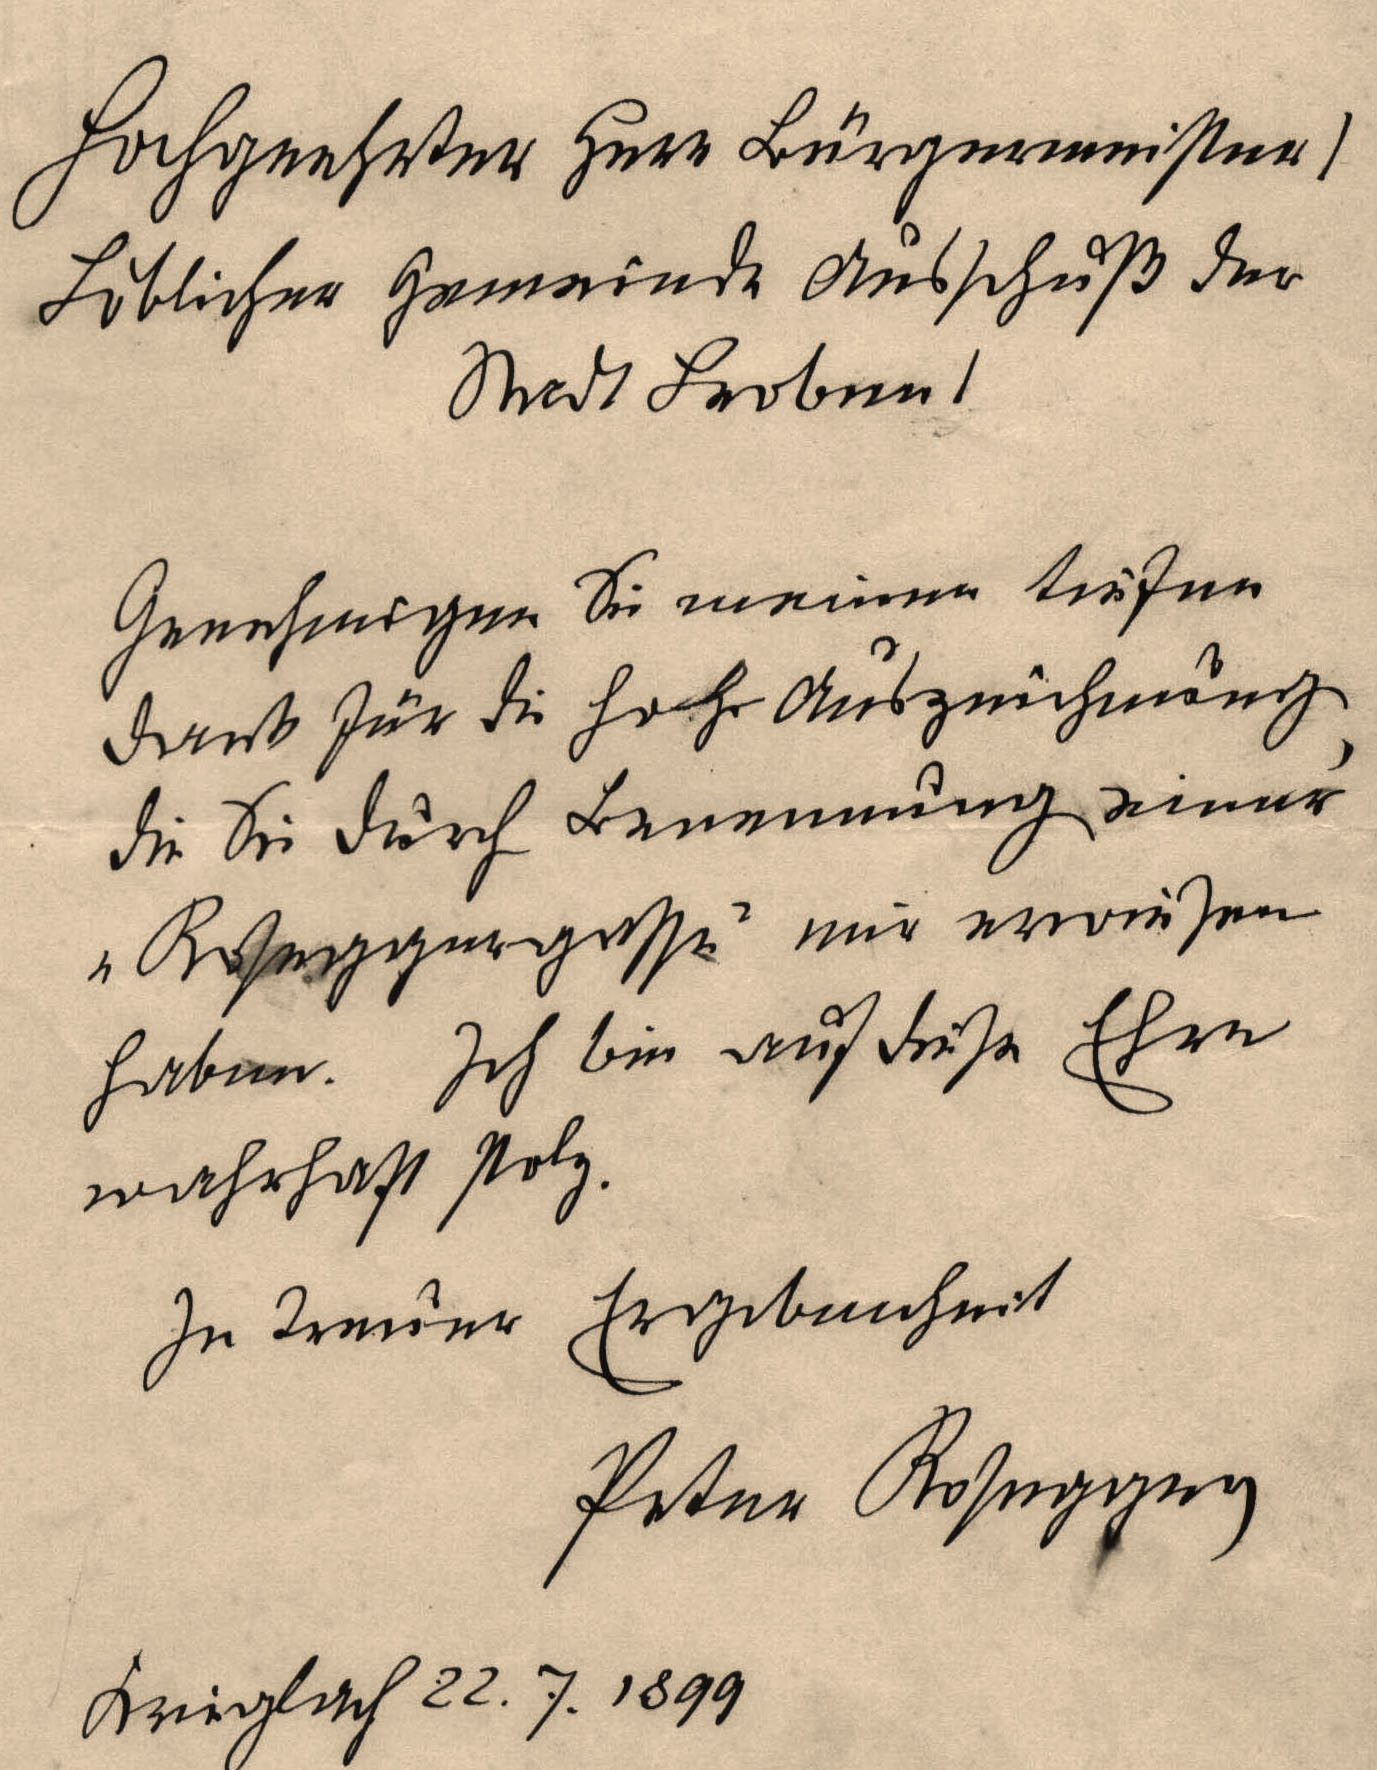 Hochgeehrter Herr Bürgermeister!
Löblicher Gemeinde Ausschuß der
Stadt Leoben!
Genehmigen Sie meinen tiefen
Dank für die hohe Auszeichnung,
die Sie durch Benennung einer
„Roseggergasse“ mir erwiesen
haben. Ich bin auf diese Ehre
wahrhaft stolz.
In Treuer Ergebenheit
Peter Rosegger
Krieglach 22. 7. 1899